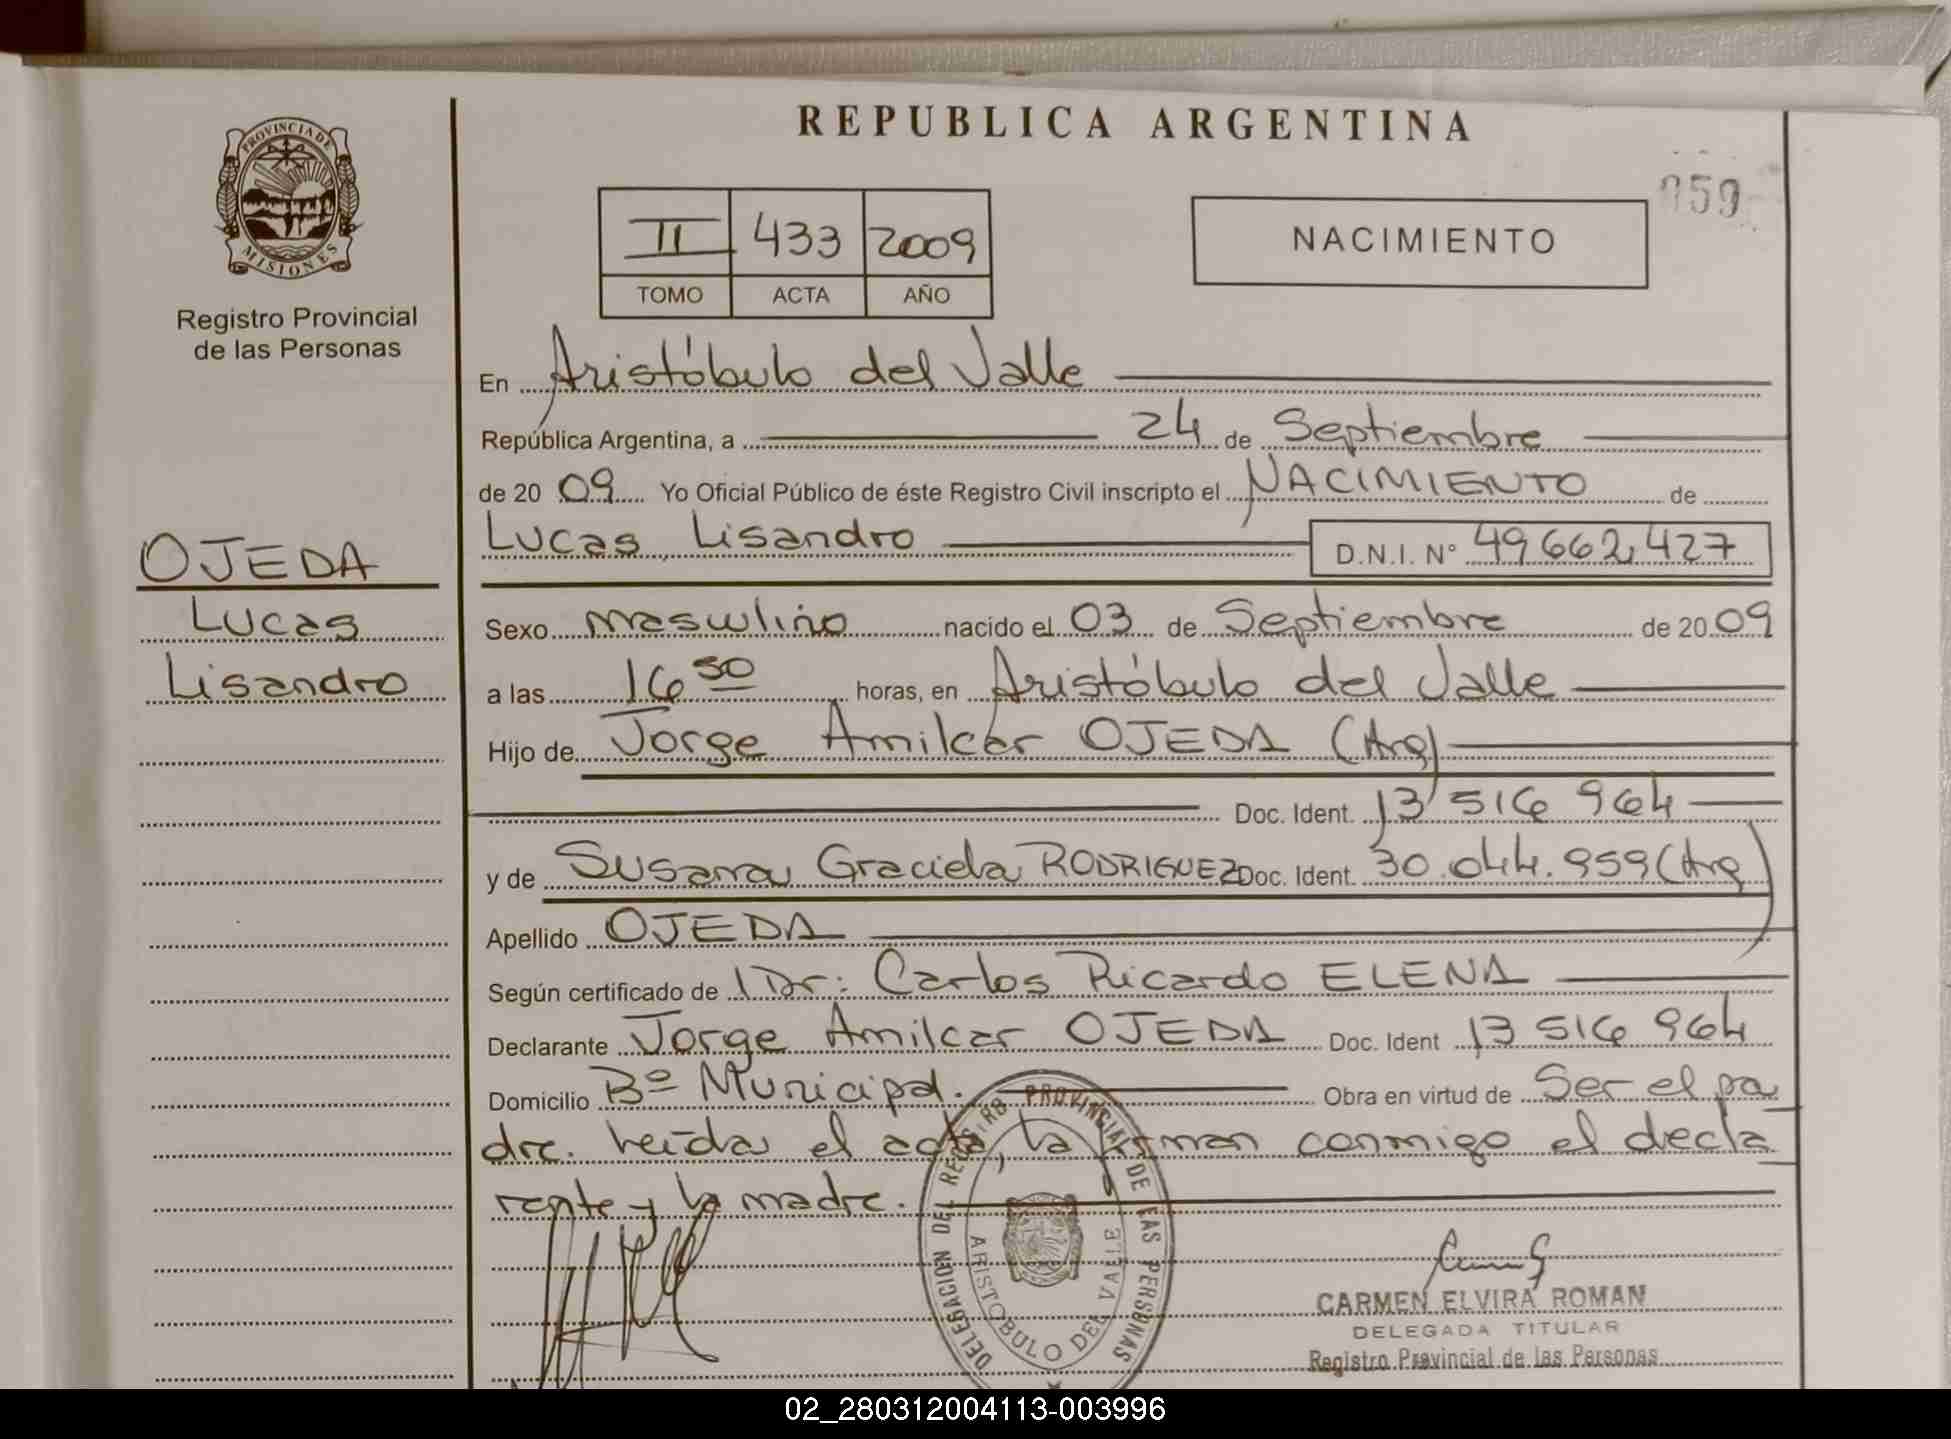 REPUBLICA ARGENTINA
PROVINCIA DE
MISIONES
Registro Provincial
de las Personas
059
II 433 2009
TOMO ACTA AÑO
NACIMIENTO
En Aristóbulo del Valle
República Argentina, a 24 de Septiembre
de 20 09 Yo Oficial Público de éste Registro Civil inscripto el NACIMIENTO de
Lucas Lisandro D.N.I. N° 49662,427
OJEDA
Lucas
Lisandro
Sexo masculino nacido el 03 de Septiembre de 20 09
a las 16 50 horas, en Aristóbulo del Valle
Hijo de Jorge Amilcar OJEDA (Arg)
Doc. Ident. 13 516 964
y de Susana Graciela RODRIGUEZ Doc. Ident. 30.044.959 (Arg)
Apellido OJEDA
Según certificado de Dr: Carlos Ricardo ELENA
Declarante Jorge Amilcar OJEDA Doc. Ident 13 516 964
Domicilio Bº Municipal. Obra en virtud de Ser el pa
dre. Leída el acta, la firman conmigo el decla
rante y la madre.
DELEGACION DEL REGISTRO PROVINCIAL DE LAS PERSONAS
ARISTOBULO DEL VALLE
CARMEN ELVIRA ROMAN
DELEGADA TITULAR
Registro Provincial de las Personas
02_280312004113-003996